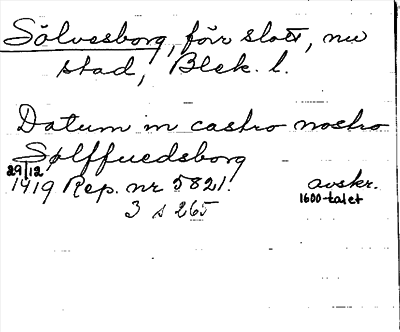 Sölvesborg, förr slott, nu
stad, Blek. l.
Datum in castro nostro
Sølffuedsborg
29/12
1419 Rep. nr 5821. avskr.
1600-talet
3 s 265